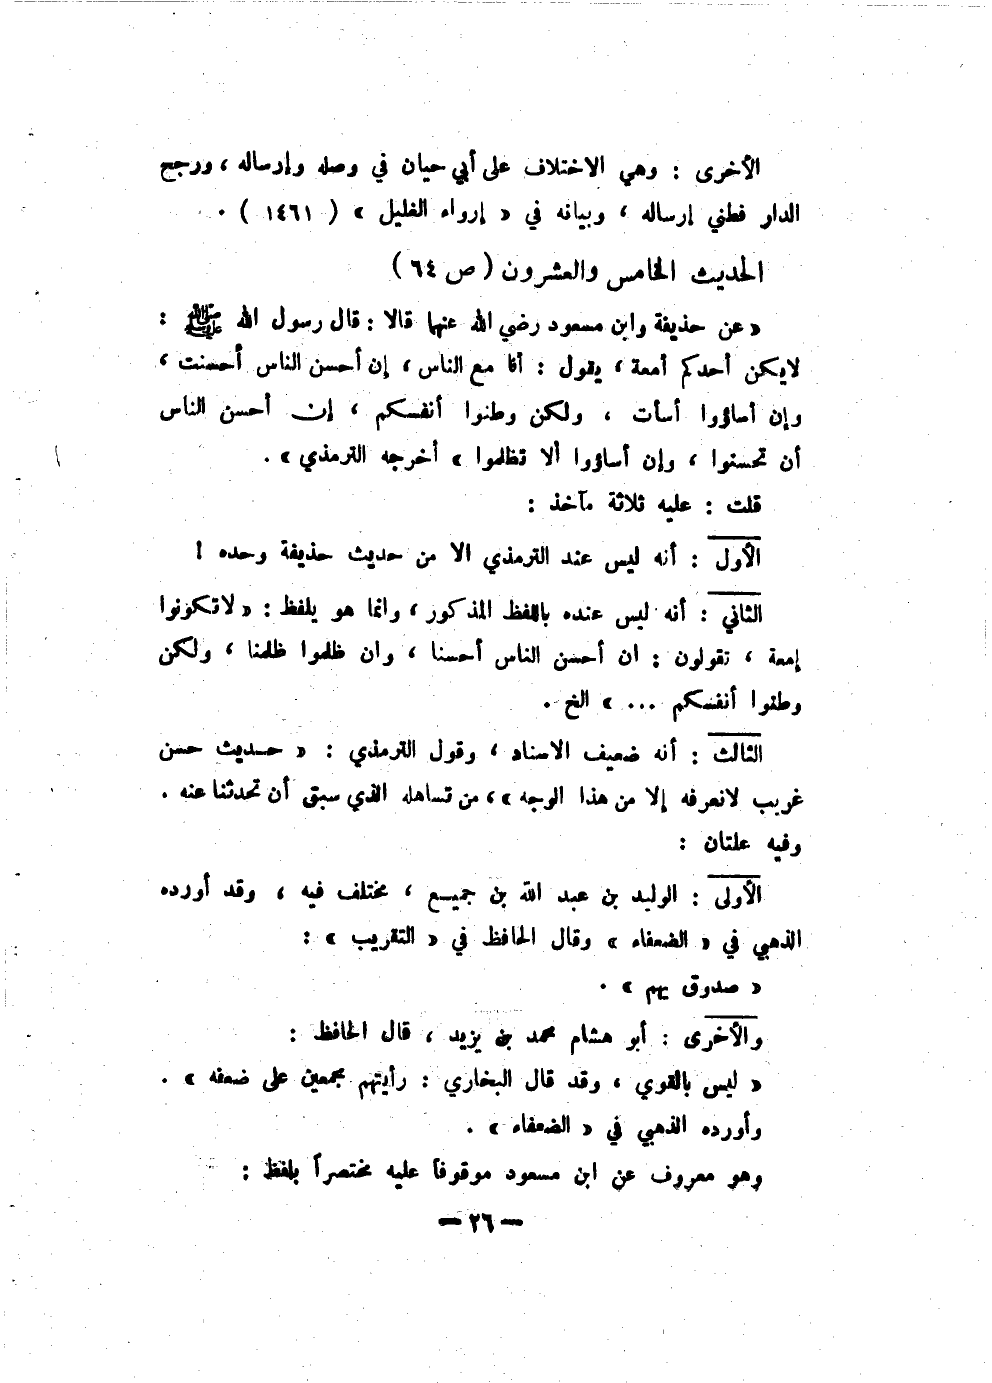 الأخرى : وهي الاختلاف على أبي حيان في وصله وإرساله ، ورجح
الدار قطني إرساله ، وبيانه في « إرواء الغليل » ( ١٤٦١ ) .
الحديث الخامس والعشرون ( ص ٦٤ )
« عن حذيفة وابن مسعود رضي الله عنهما قالا : قال رسول الله ﷺ :
لايكن أحدكم أمعة ، يقول : أنا مع الناس ، إن أحسن الناس أحسنت ،
وإن أساؤوا أسأت ، ولكن وطنوا أنفسكم ، إن أحسن الناس
أن تحسنوا ، وإن أساؤوا ألا تظلموا » أخرجه الترمذي » .
قلت : عليه ثلاثة مآخذ :
الأول : أنه ليس عند الترمذي الا من حديث حذيفة وحده !
الثاني : أنه ليس عنده باللفظ المذكور ، وانما هو بلفظ : « لاتكونوا
إمعة ، تقولون : ان أحسن الناس أحسنا ، وان ظلموا ظلمنا ، ولكن
وطنوا أنفسكم ... » الخ .
الثالث : أنه ضعيف الاسناد ، وقول الترمذي : « حديث حسن
غريب لانعرفه إلا من هذا الوجه » ، من تساهله الذي سبق أن تحدثنا عنه .
وفيه علتان :
الأولى : الوليد بن عبد الله بن جميع ، مختلف فيه ، وقد أورده
الذهبي في « الضعفاء » وقال الحافظ في « التقريب » :
« صدوق يهم » .
والأخرى : أبو هشام محمد بن يزيد ، قال الحافظ :
« ليس بالقوي ، وقد قال البخاري : رأيتهم مجمعين على ضعفه » .
وأورده الذهبي في « الضعفاء » .
وهو معروف عن ابن مسعود موقوفاً عليه مختصراً بلفظ :
— ٢٦ —